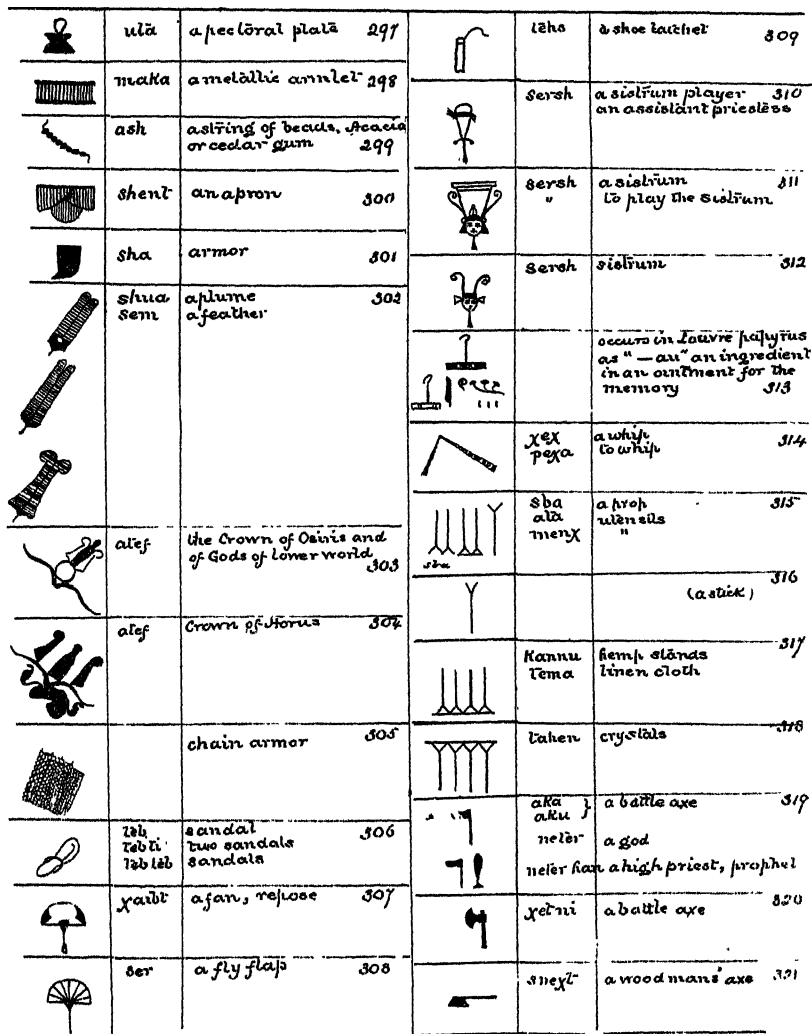 utā a pectoral plate 297
maka a metallic armlet 298
ash a string of beads, Acacia
or cedar gum 299
shent an apron 300
sha armor 301
shua a plume 302
sem a feather
atef the Crown of Osiris and
of Gods of Lower world
303
atef Crown of Horus 304
chain armor 305
teb sandal 306
tebti two sandals
teb teb sandals
χaibt a fan, repose 307
ser a fly flap 308
tehs a shoe latchet 309
sersh a sistrum player 310
an assistant priestess
sersh a sistrum 311
" to play the sistrum
sersh sistrum 312
occurs in Louvre papyrus
as "—au" an ingredient
in an ointment for the
memory 313
χex a whip 314
peχa to whip
sba a prop 315
ata utensils
menχ "
sba
316
(a stick)
317
Kannu hemp stands
tema linen cloth
318
tahen crystals
319
aka } a battle axe
aku
neter a god
neter han a high priest, prophet
320
χetni a battle axe
sneχt a woodmans' axe 321